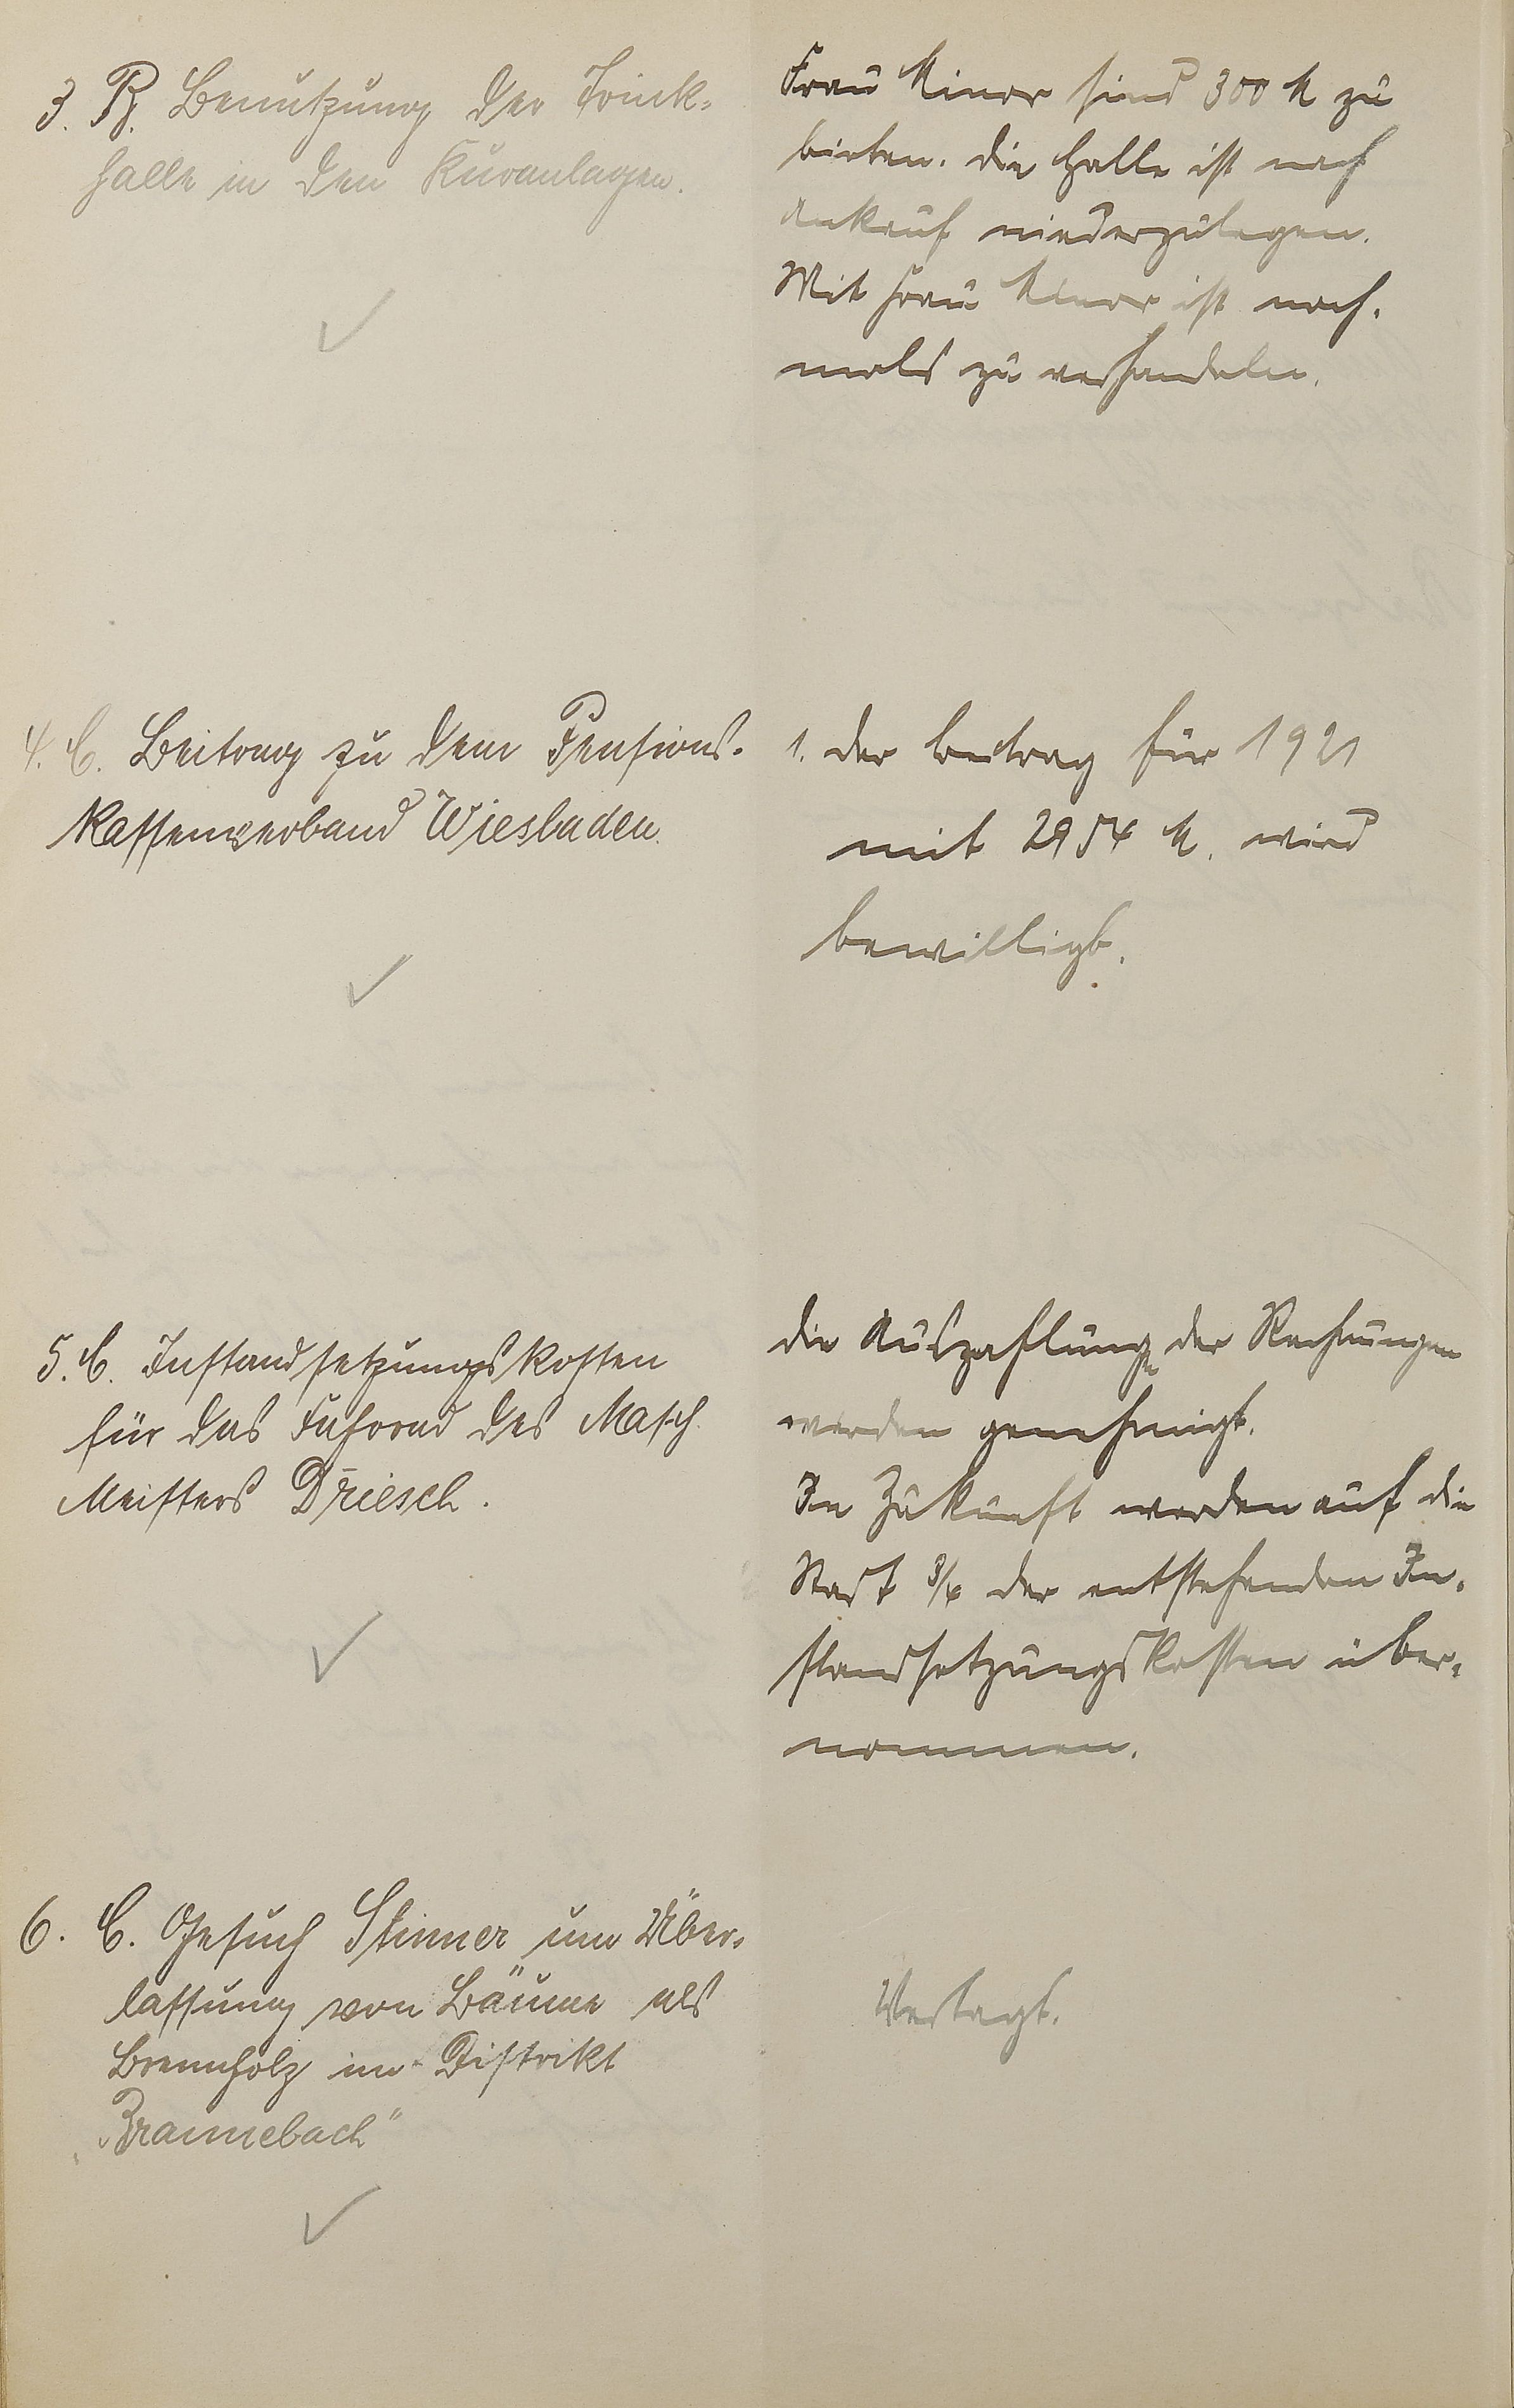 3. B. Benutzung der Trink-
halle in den Kuranlagen.
Frau Minor sind 300 M zu
bieten. Die Halle ist nach
Ankauf niederzulegen.
Mit Frau Minor ist noch-
mals zu verhandeln.
4. C. Beitrag zu dem Pensions-
kassenverband Wiesbaden.
1. Der Beitrag für 1921
mit 2954 M. wird
bewilligt.
5. C. Instandsetzungskosten
für das Fahrrad des Masch.
Meisters Driesch.
Die Auszahlungen der Rechnungen
werden genehmigt.
In Zukunft werden auf die
Stadt 3/4 der entstehenden In-
standsetzungskosten über-
nommen.
6. C. Gesuch Stinner um Über-
lassung von Bäume als
Brennholz im Distrikt
„Braunebach"
Vertagt.